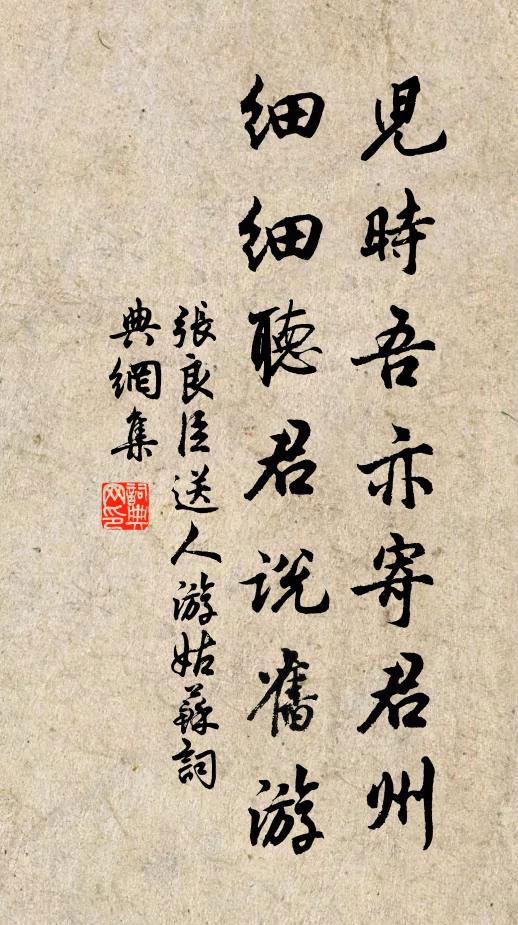 兒時吾亦寄君州
細細聽君說舊游
張良臣送人游姑蘇詞
典網集
詞典
网印